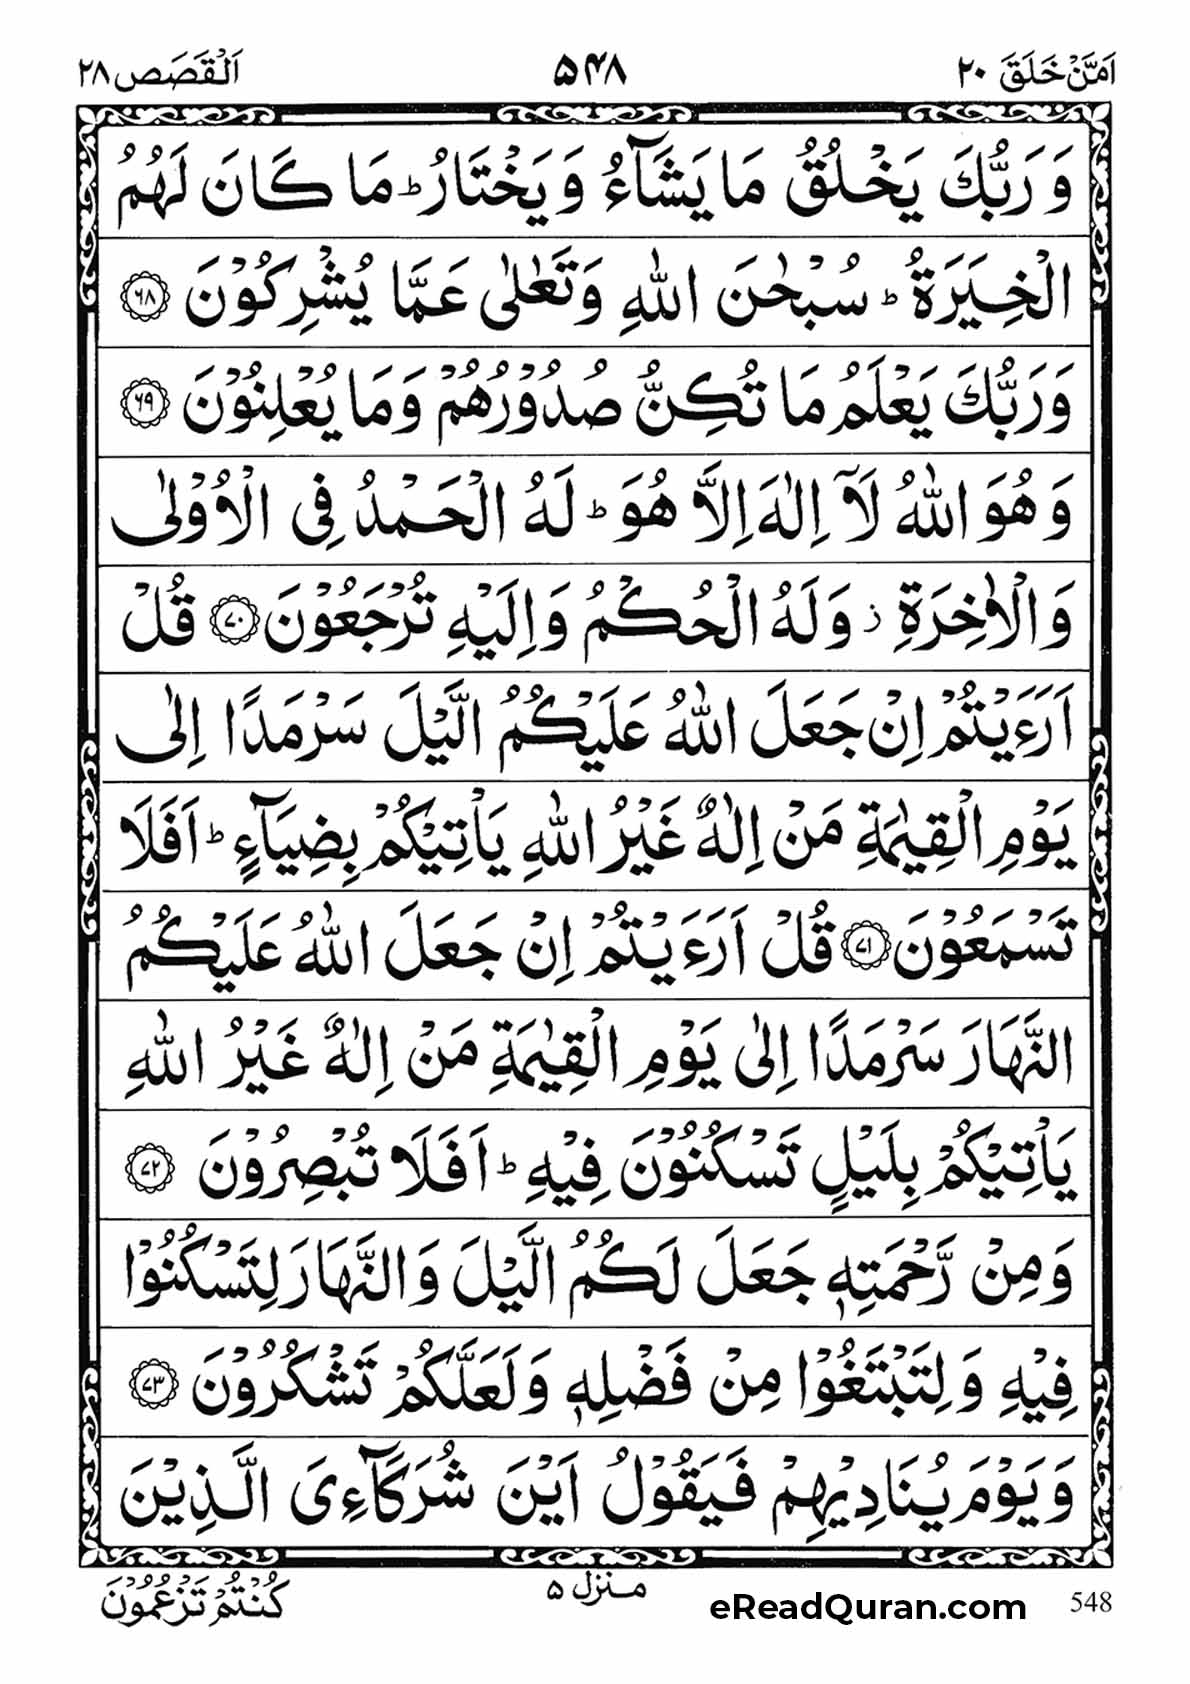 اَمَّنْ خَلَقَ ۲۰
۵۴۸
اَلْقَصَص ۲۸
وَ رَبُّكَ یَخْلُقُ مَا یَشَآءُ وَ یَخْتَارُ ؕ مَا كَانَ لَهُمُ
الْخِیَرَةُ ؕ سُبْحٰنَ اللّٰهِ وَ تَعٰلٰی عَمَّا یُشْرِكُوْنَ ۝۶۸
وَ رَبُّكَ یَعْلَمُ مَا تُكِنُّ صُدُوْرُهُمْ وَ مَا یُعْلِنُوْنَ ۝۶۹
وَ هُوَ اللّٰهُ لَاۤ اِلٰهَ اِلَّا هُوَ ؕ لَهُ الْحَمْدُ فِی الْاُوْلٰی
وَ الْاٰخِرَةِ ؗ وَ لَهُ الْحُكْمُ وَ اِلَیْهِ تُرْجَعُوْنَ ۝۷۰ قُلْ
اَرَءَیْتُمْ اِنْ جَعَلَ اللّٰهُ عَلَیْكُمُ الَّیْلَ سَرْمَدًا اِلٰی
یَوْمِ الْقِیٰمَةِ مَنْ اِلٰهٌ غَیْرُ اللّٰهِ یَاْتِیْكُمْ بِضِیَآءٍ ؕ اَفَلَا
تَسْمَعُوْنَ ۝۷۱ قُلْ اَرَءَیْتُمْ اِنْ جَعَلَ اللّٰهُ عَلَیْكُمُ
النَّهَارَ سَرْمَدًا اِلٰی یَوْمِ الْقِیٰمَةِ مَنْ اِلٰهٌ غَیْرُ اللّٰهِ
یَاْتِیْكُمْ بِلَیْلٍ تَسْكُنُوْنَ فِیْهِ ؕ اَفَلَا تُبْصِرُوْنَ ۝۷۲
وَ مِنْ رَّحْمَتِهٖ جَعَلَ لَكُمُ الَّیْلَ وَ النَّهَارَ لِتَسْكُنُوْا
فِیْهِ وَ لِتَبْتَغُوْا مِنْ فَضْلِهٖ وَ لَعَلَّكُمْ تَشْكُرُوْنَ ۝۷۳
وَ یَوْمَ یُنَادِیْهِمْ فَیَقُوْلُ اَیْنَ شُرَكَآءِیَ الَّذِیْنَ
كُنْتُمْ تَزْعُمُوْنَ
منزل ۵
eReadQuran.com
548